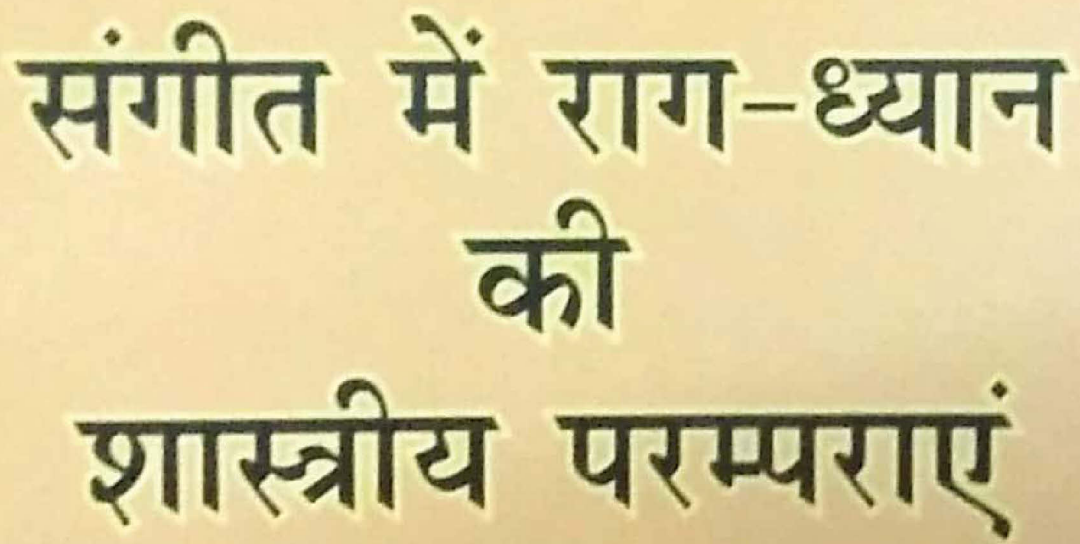 संगीत में राग-ध्यान
की
शास्त्रीय परम्पराएं